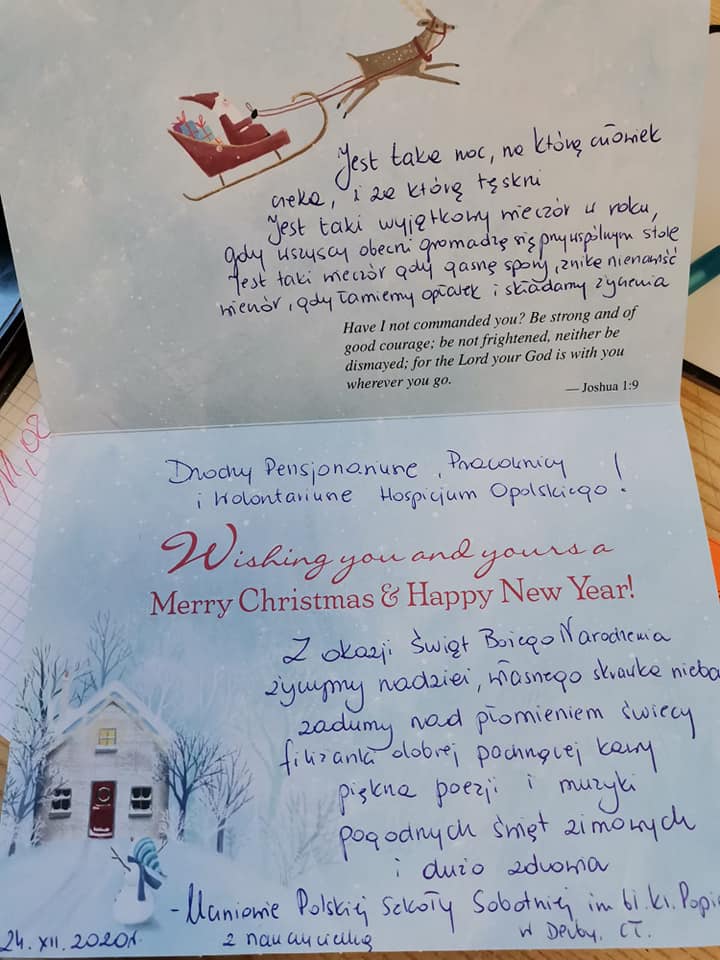 Jest taka noc, na którą człowiek
czeka, i za którą tęskni
Jest taki wyjątkowy wieczór w roku,
gdy wszyscy obecni gromadzą się przy wspólnym stole
Jest taki wieczór gdy gasną spory, znika nienawiść
wieczór, gdy łamiemy opłatek i składamy życzenia
Have I not commanded you? Be strong and of
good courage; be not frightened, neither be
dismayed; for the Lord your God is with you
wherever you go.
— Joshua 1:9
Drodzy Pensjonariusze, Pracownicy
i Wolontariusze Hospicjum Opolskiego!
Wishing you and yours a
Merry Christmas & Happy New Year!
Z okazji Świąt Bożego Narodzenia
życzymy nadziei, własnego skrawka nieba
zadumy nad płomieniem świecy
filiżanki dobrej pachnącej kawy
piękna poezji i muzyki
pogodnych świąt zimowych
i dużo zdrowia
- Uczniowie Polskiej Szkoły Sobotniej im bł. ks. Popie
24. XII. 2020r. z nauczycielką w Derby, CT.